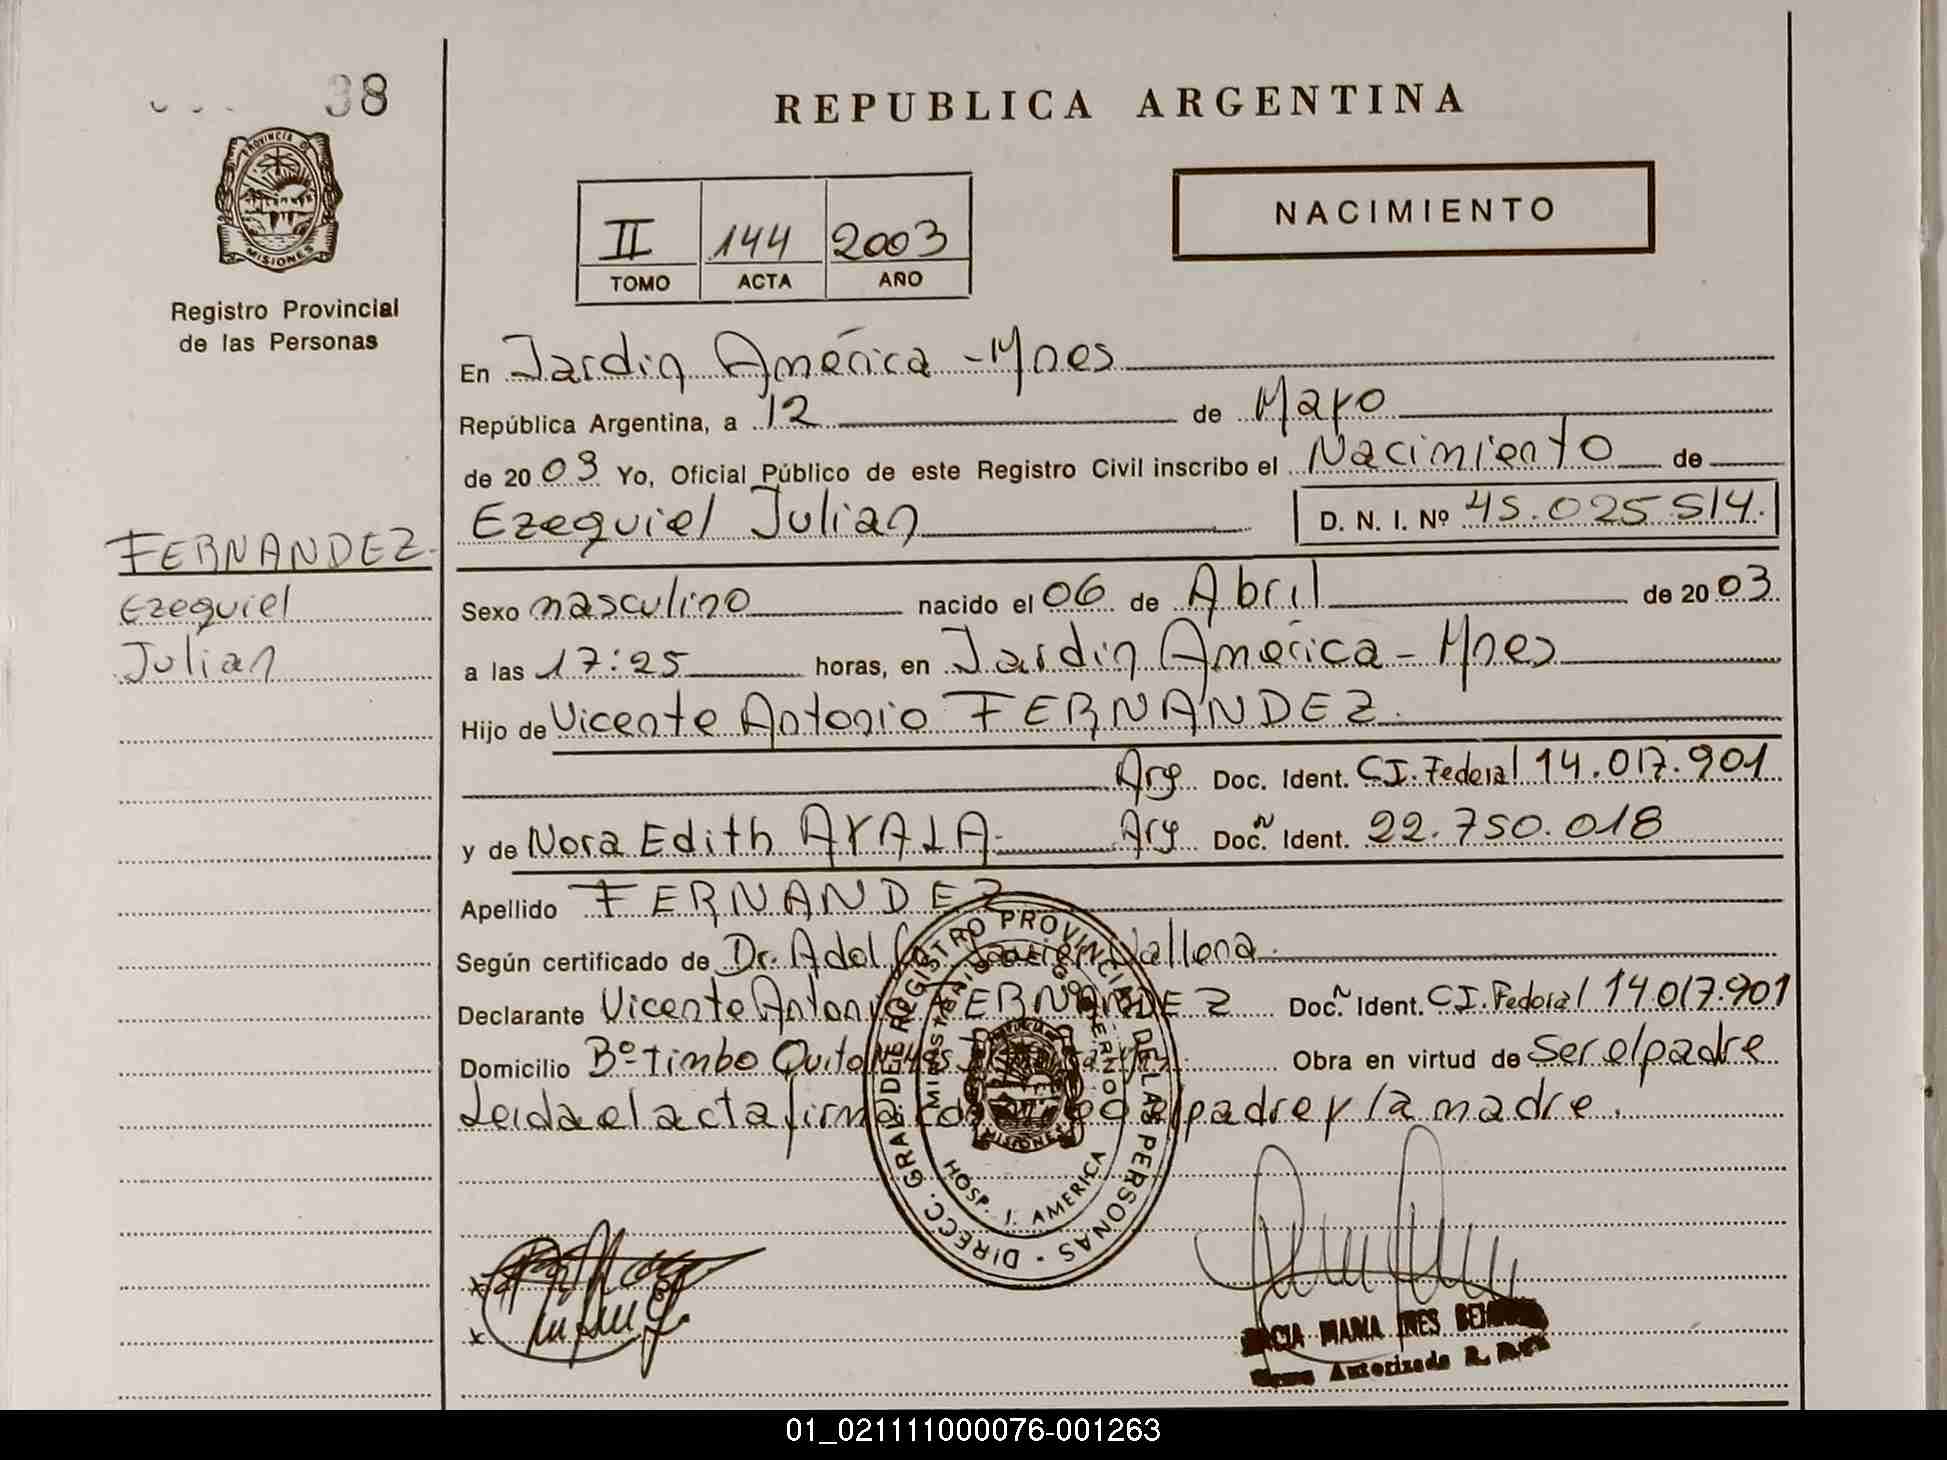 38
PROVINCIA DE
MISIONES
Registro Provincial
de las Personas
FERNANDEZ.
Ezequiel
Julian
REPUBLICA ARGENTINA
NACIMIENTO
II 144 2003
TOMO ACTA AÑO
En Jardin América - Mnes
República Argentina, a 12 de Mayo
de 2003 Yo, Oficial Público de este Registro Civil inscribo el Nacimiento de
Ezequiel Julian D. N. I. Nº 45.025.514.
Sexo masculino nacido el 06 de Abril de 2003
a las 17:25 horas, en Jardin América - Mnes
Hijo de Vicente Antonio FERNANDEZ.
Arg Doc. Ident. CI. Federal 14.017.901
y de Nora Edith AYALA- Arg Doc. Ident. 22.750.018
Apellido FERNANDEZ
Según certificado de Dr.
Declarante Vicente Antonio FERNANDEZ Doc. Ident. CI. Federal 14.017.901
Domicilio Bº Timbo Obra en virtud de Ser el padre
Leida el acta firma el padre y la madre.
DIRECC. GRAL. DEL REGISTRO PROVINCIAL DE LAS PERSONAS
MINISTERIO DE GOBIERNO
MISIONES
HOSP. J. AMERICA
MARIA INES
Autorizada
01_021111000076-001263